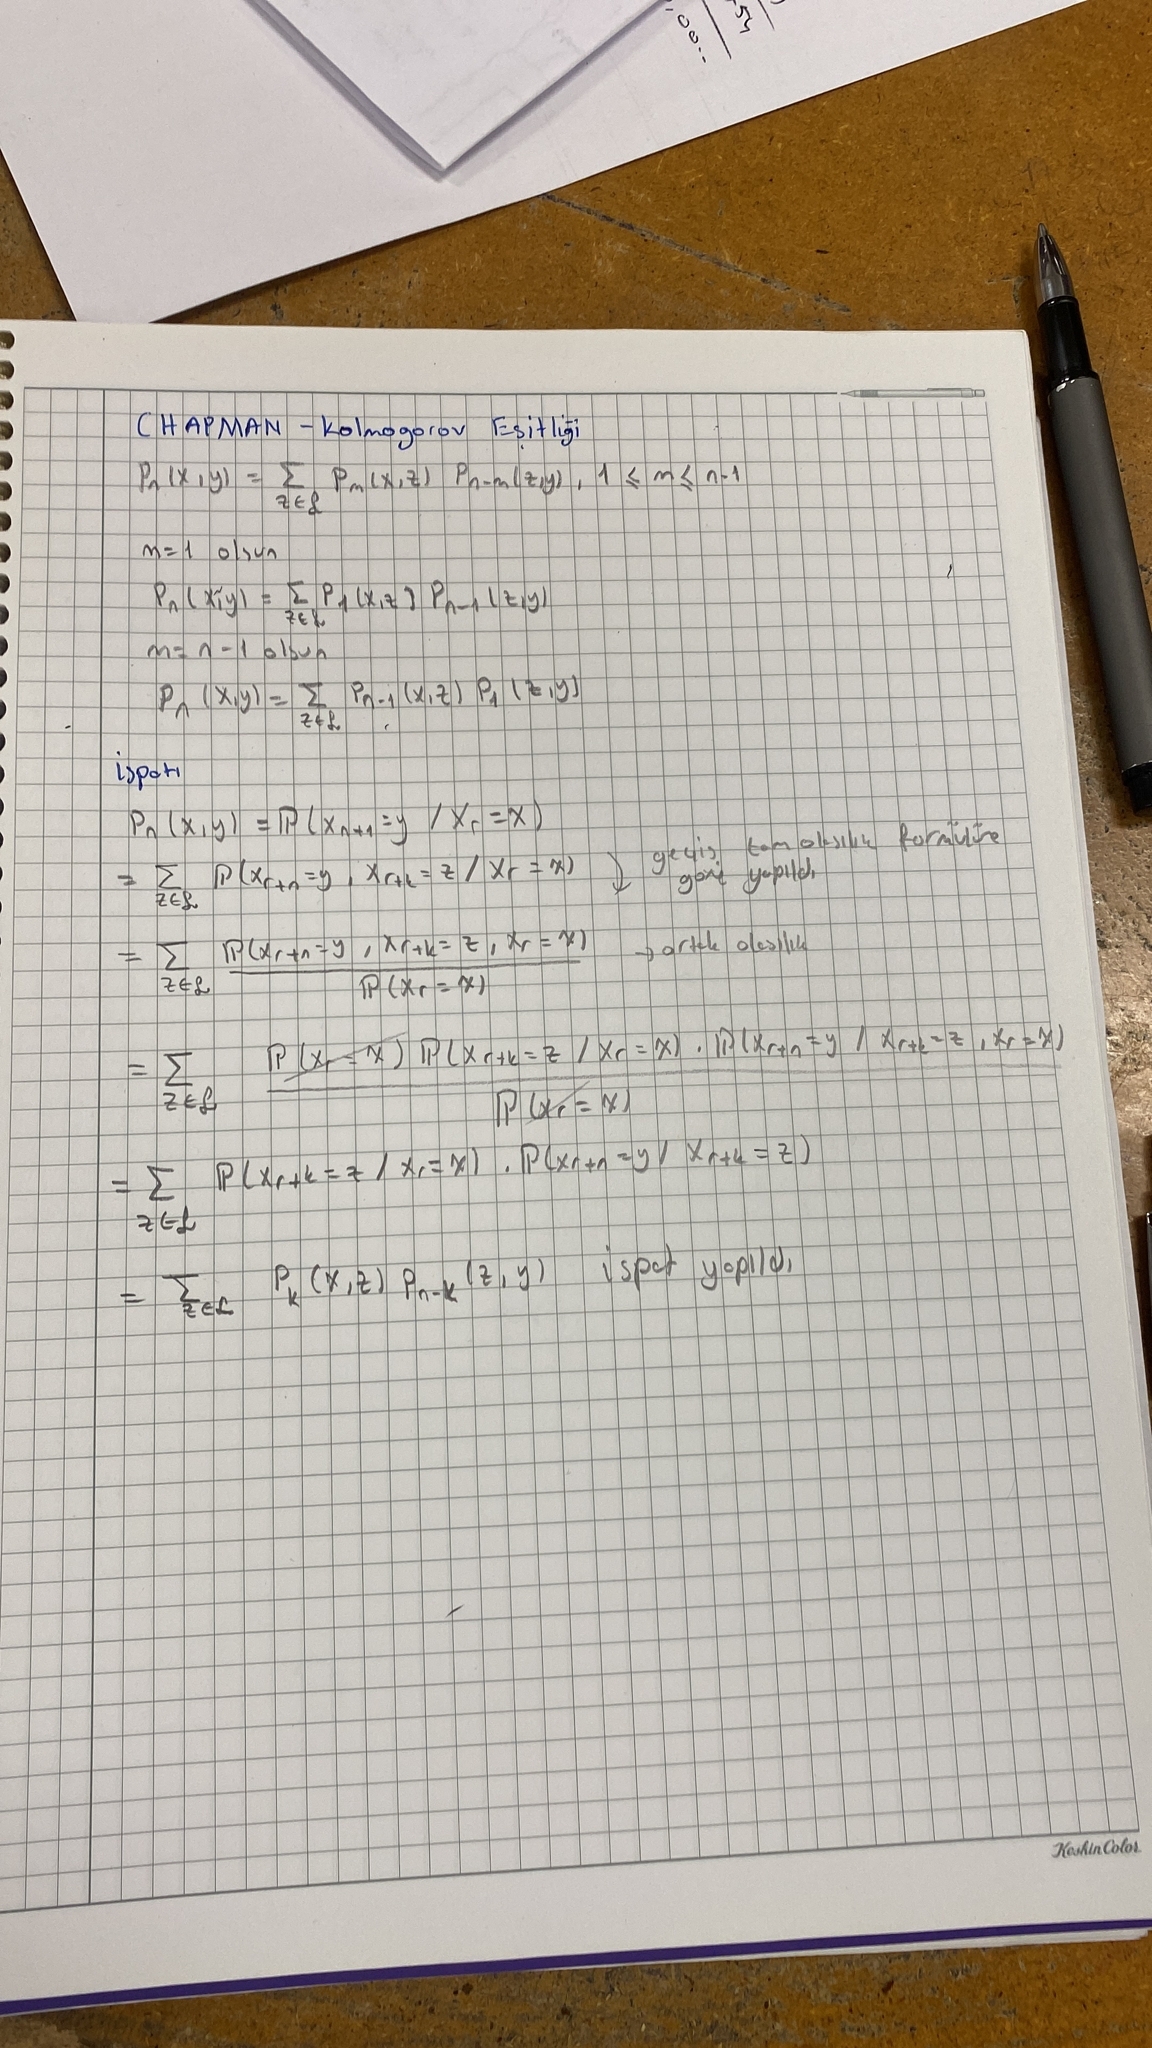 CHAPMAN - Kolmogorov Eşitliği
Pn(x,y) = Σ z∈£ Pm(x,z) Pn-m(z,y), 1 ≤ m ≤ n-1
m=1 olsun
Pn(x,y) = Σ z∈£ P1(x,z) Pn-1(z,y)
m= n-1 olsun
Pn(x,y) = Σ z∈£ Pn-1(x,z) P1(z,y)
ispatı
Pn(x,y) = ℙ(Xn+1=y / Xr=x)
= Σ z∈£ ℙ(Xr+n=y, Xr+k=z / Xr=x) geçiş tam olasılık formülüne
göre yapıldı
= Σ z∈£ ℙ(Xr+n=y, Xr+k=z, Xr=x) → ortak olasılık
ℙ(Xr=x)
= Σ z∈£ ℙ(Xr=x) ℙ(Xr+k=z / Xr=x) . ℙ(Xr+n=y / Xr+k=z, Xr=x)
ℙ(Xr=x)
= Σ z∈£ ℙ(Xr+k=z / Xr=x) . ℙ(Xr+n=y / Xr+k=z)
= Σ z∈£ Pk(x,z) Pn-k(z,y) ispat yapıldı
KeskinColor